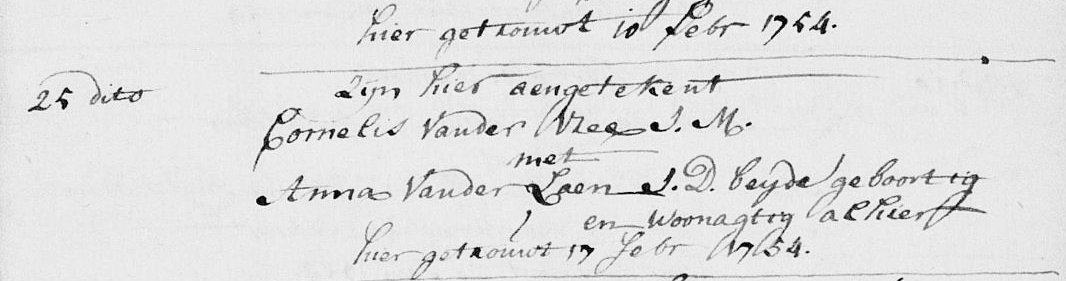 hier getrouwt 10 Febr 1754.
25 dito
Zijn hier aengetekent
Cornelis Vander Vlee J. M.
met
Anna Vander Laen J. D. beyde geboortig
en woonagtig alhier
hier getrouwt 17 Febr 1754.